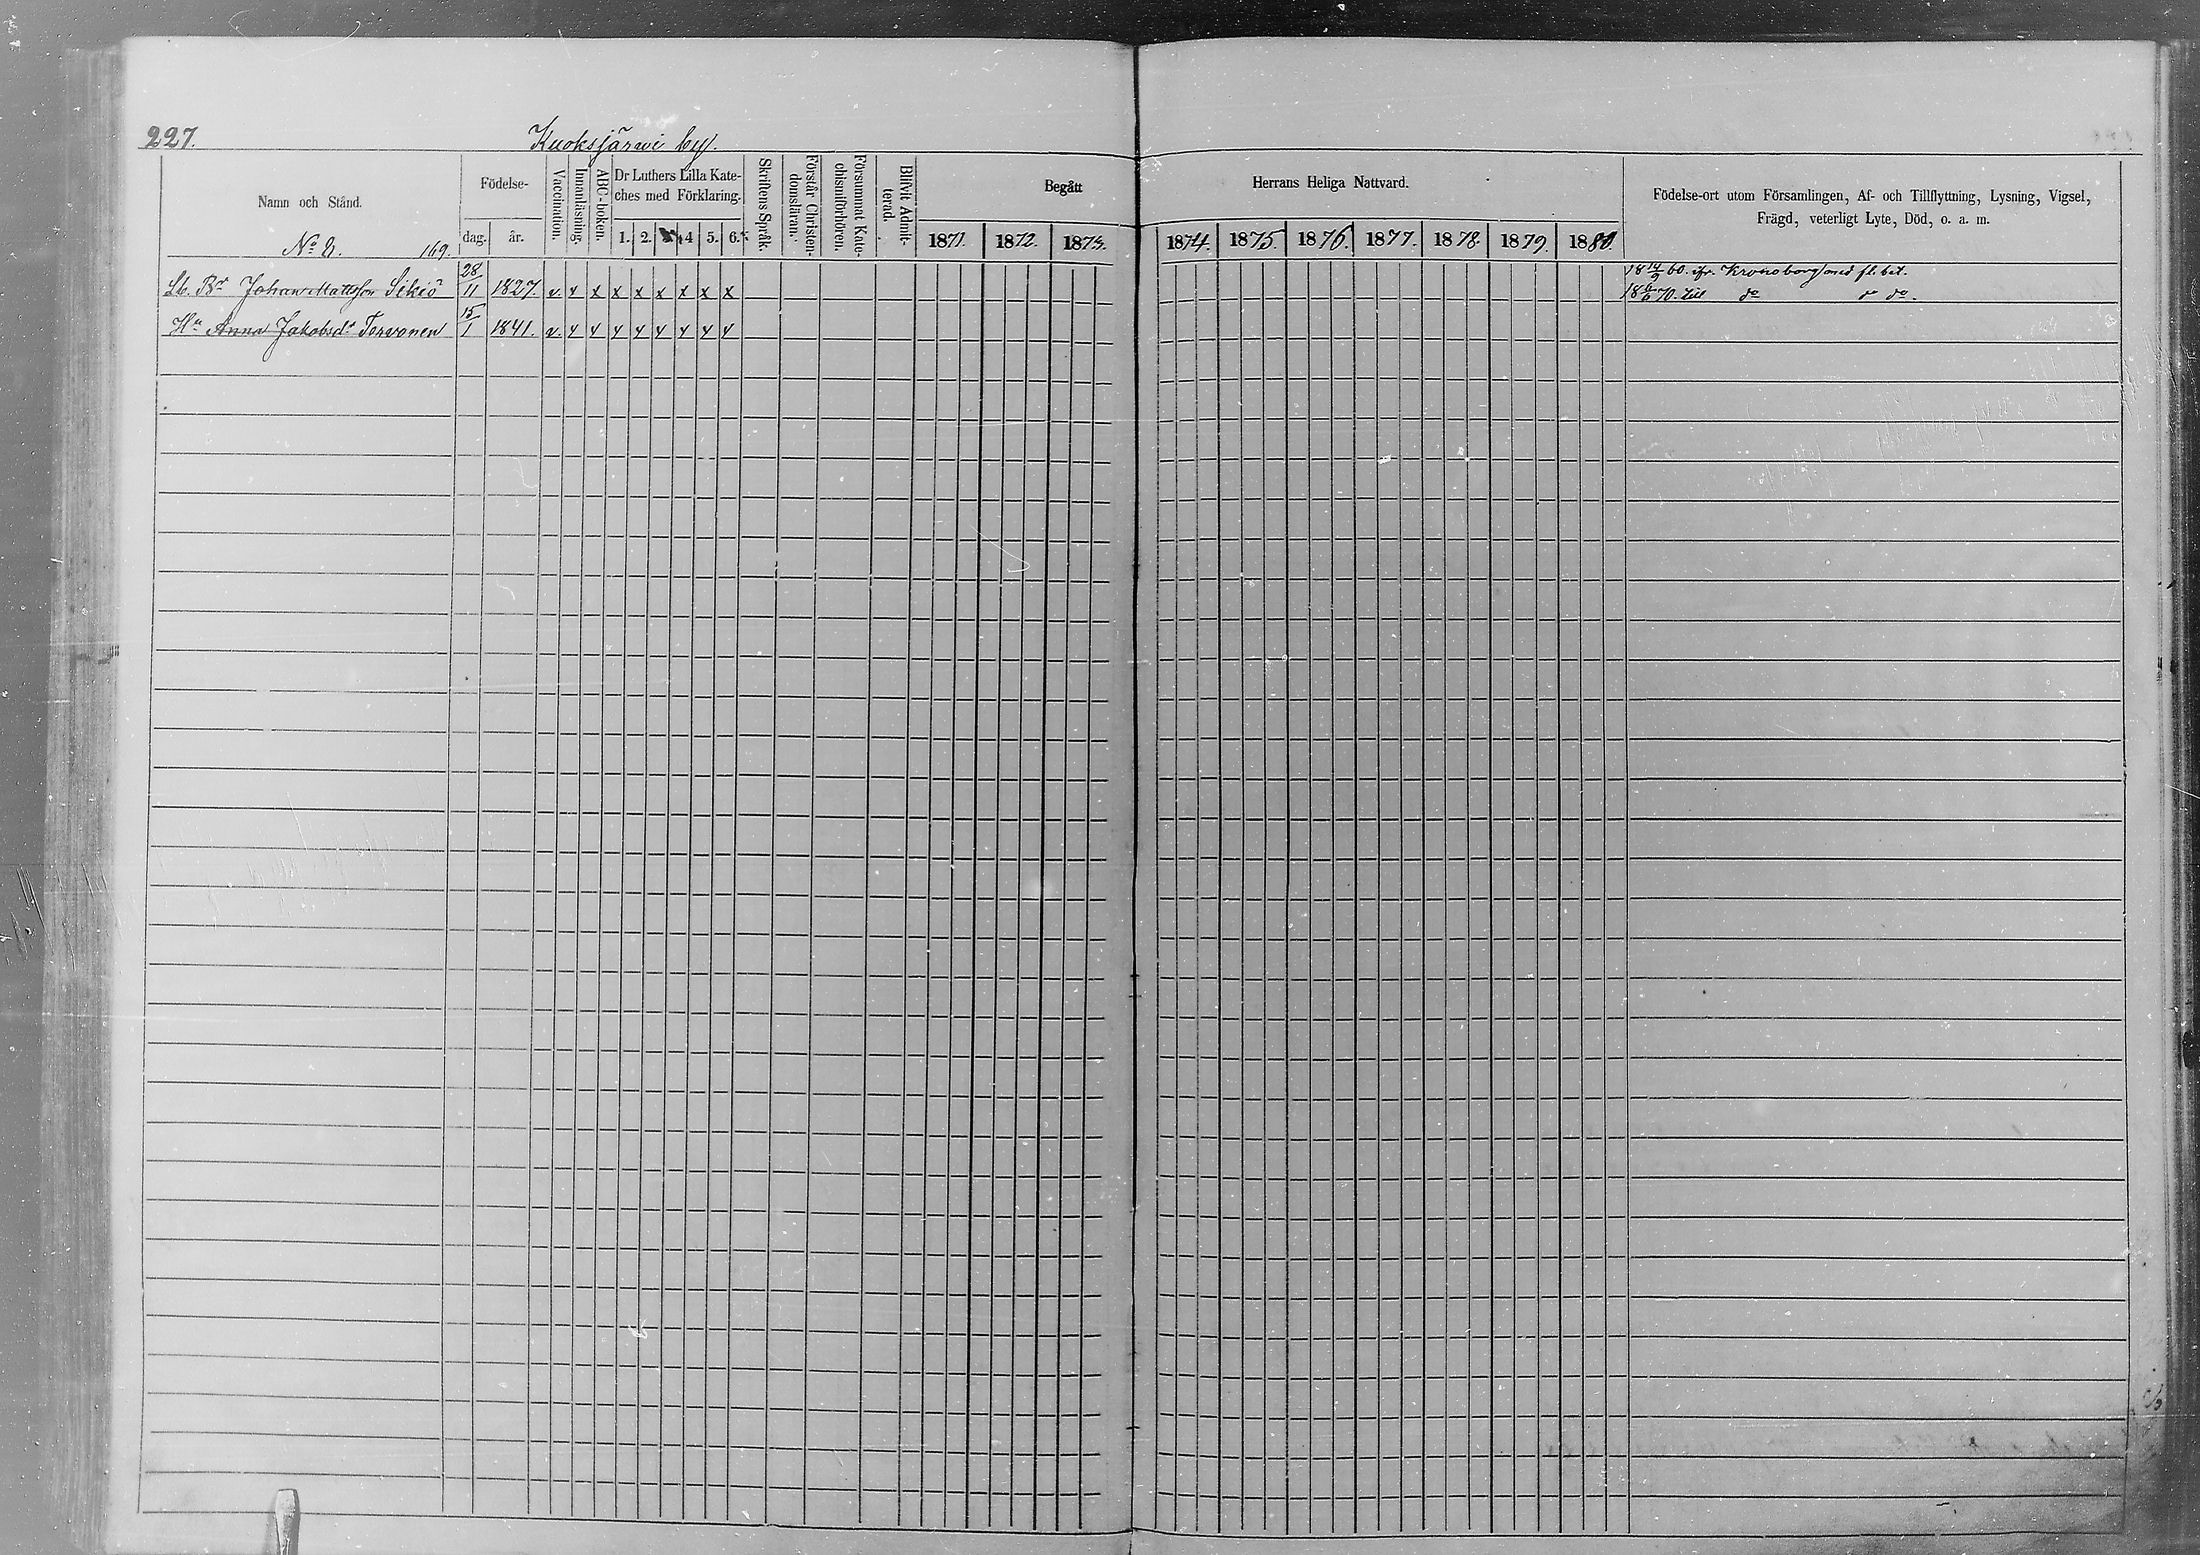 227.
Kuoksjärwi by.
Namn och Stånd.
Födelse-
dag.
år.
Vaccination.
Innanläsning.
ABC-boken.
Dr Luthers Lilla Kate-
ches med Förklaring.
1. 2. 4 5. 6.
Skriftens Språk.
Förstår Christen-
domsläran.
Försummat Kate-
chismiförhören.
Blifvit Admit-
terad.
Begått
Herrans Heliga Nattvard.
1871. 1872. 1873. 1874. 1875. 1876. 1877. 1878. 1879. 1880.
Födelse-ort utom Församlingen, Af- och Tillflyttning, Lysning, Vigsel,
Frägd, veterligt Lyte, Död, o. a. m.
No 8. 169.
Br Johan Mattsson Sikiö 28/11 1827. v. x x x x x x x x
18 14/9 60. ifr. Kronoborg med fl. bet.
18 6/6 70. till do do do.
Hu Anna Jakobsdr Torvonen 15/1 1841. v. x x x x x x x x